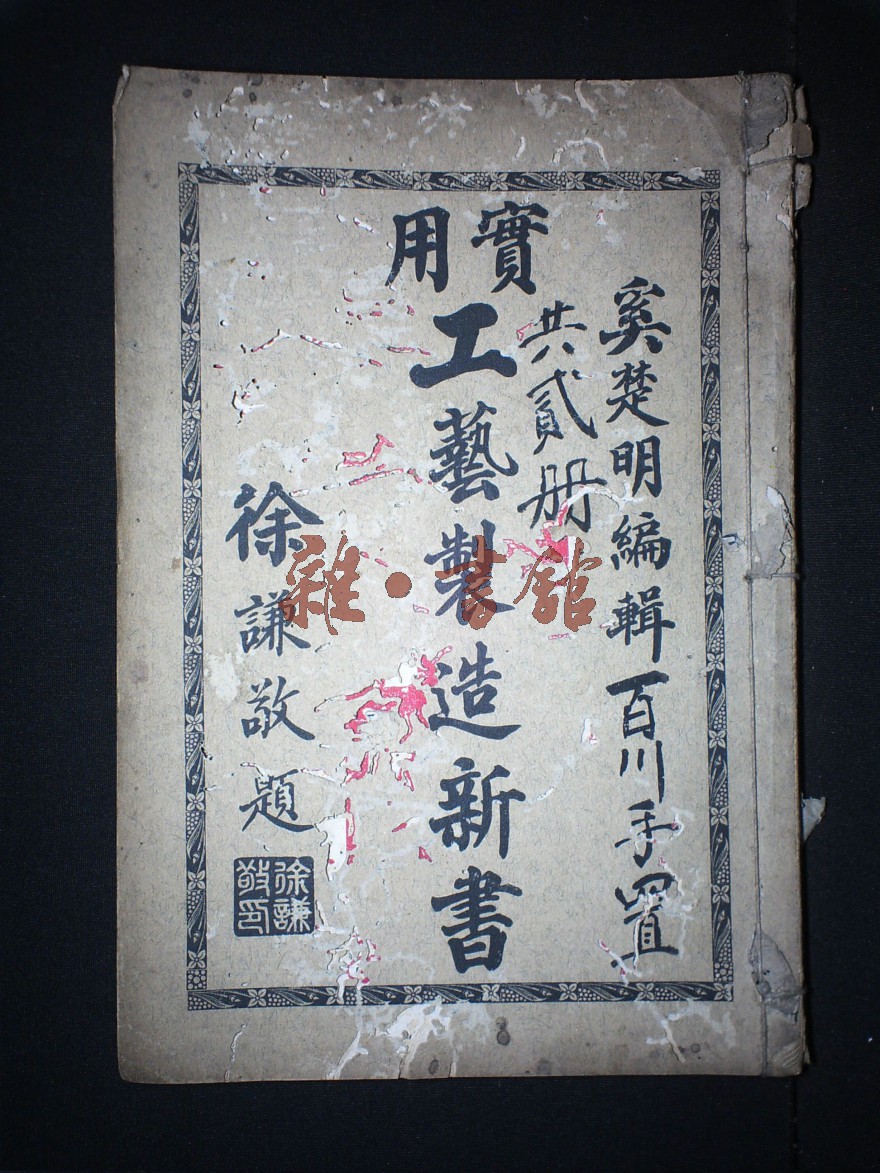 奚楚明編輯
百川手置
共貳册
實用
工藝製造新書
徐謙敬題
徐謙
敬印
雜·書館